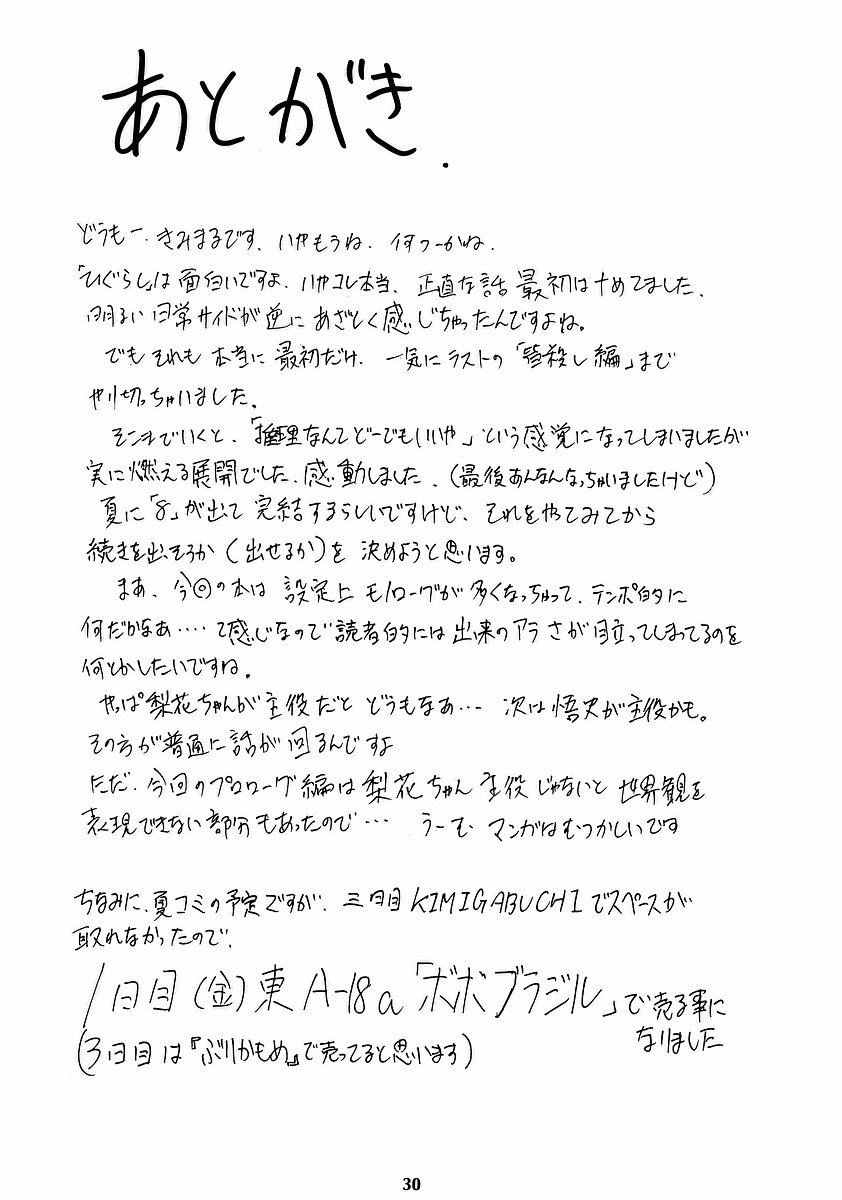 あとがき.
どうもー、きみまるです、いやもうね、何つーかね、
「ひぐらし」は面白いですよ、いやコレ本当、正直な話最初はナめてました、
明るい日常サイドが逆にあざとく感じちゃったんですよね。
でもそれも本当に最初だけ、一気にラストの「皆殺し編」まで
やり切っちゃいました。
そこまでいくと、「推理なんてどーでもいいや」という感覚になってしまいましたが
実に燃える展開でした、感動しました、(最後あんなんなっちゃいましたけど)
夏に「8」が出て完結するらしいですけど、それをやってみてから
続きを出そうか(出せるか)を決めようと思います。
まぁ、今回の本は設定上モノローグが多くなっちゃって、テンポ的に
何だかなあ‥‥て感じなので読者的には出来のアラさが目立ってしまってるのを
何とかしたいですね。
やっぱ梨花ちゃんが主役だとどうもなぁ‥‥次は悟史が主役かも。
その方が普通に話が回るんですよ
ただ、今回のプロローグ編は梨花ちゃん主役じゃないと世界観を
表現できない部分もあったので‥‥うーむマンガはむつかしいです
ちなみに、夏コミの予定ですが、三日目KIMIGABUCHIでスペースが
取れなかったので、
1日目(金)東A-18a「ボボブラジル」で売る事に
なりました
(3日目は『ぶりかもめ』で売ってると思います)
30